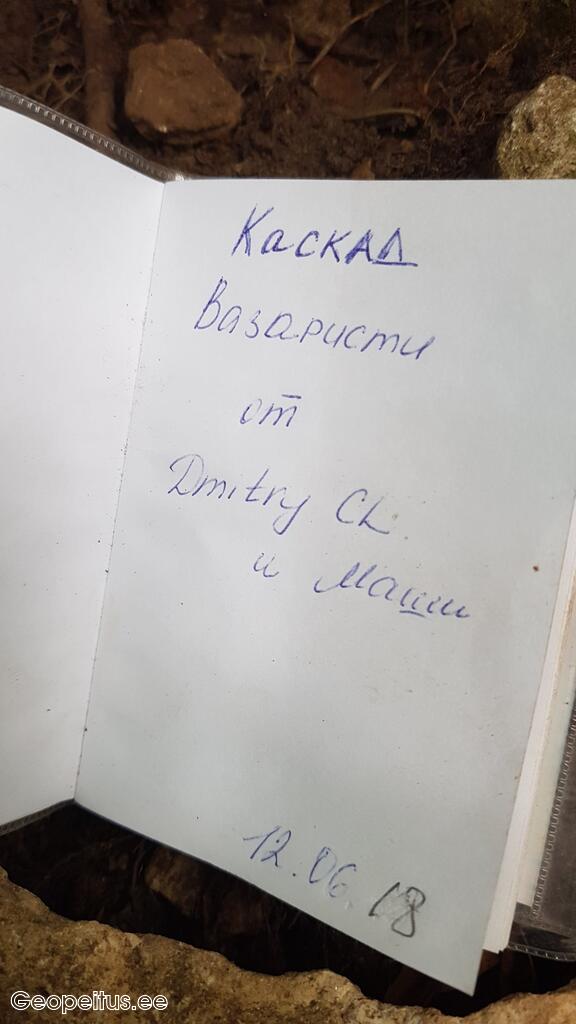 Каскад
Вазаристи
от
Dmitry CL.
и Маши
12.06.18
Geopeitus.ee